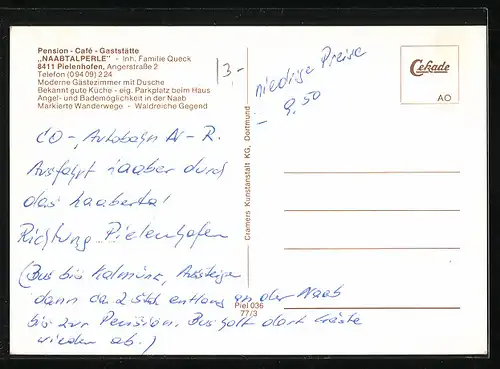 Pension - Café - Gaststätte
„NAABTALPERLE" - Inh. Familie Queck
8411 Pielenhofen, Angerstraße 2
Telefon (0 94 09) 2 24
Moderne Gästezimmer mit Dusche
Bekannt gute Küche - eig. Parkplatz beim Haus
Angel- und Bademöglichkeit in der Naab
Markierte Wanderwege - Waldreiche Gegend
3-
niedrige Preise
- 9.50
Cekade
AO
CO-, Autobahn N-R.
Ausfahrt durch
das
Richtung „Pielenhofen
(Bus bis Kalmünz, Aussteigen
dann ca 2 Std. entlang an der Naab
bis zur Pension. Bus holt dort Gäste
wieder ab.)
Cramers Kunstanstalt KG, Dortmund
Piel 036
77/3